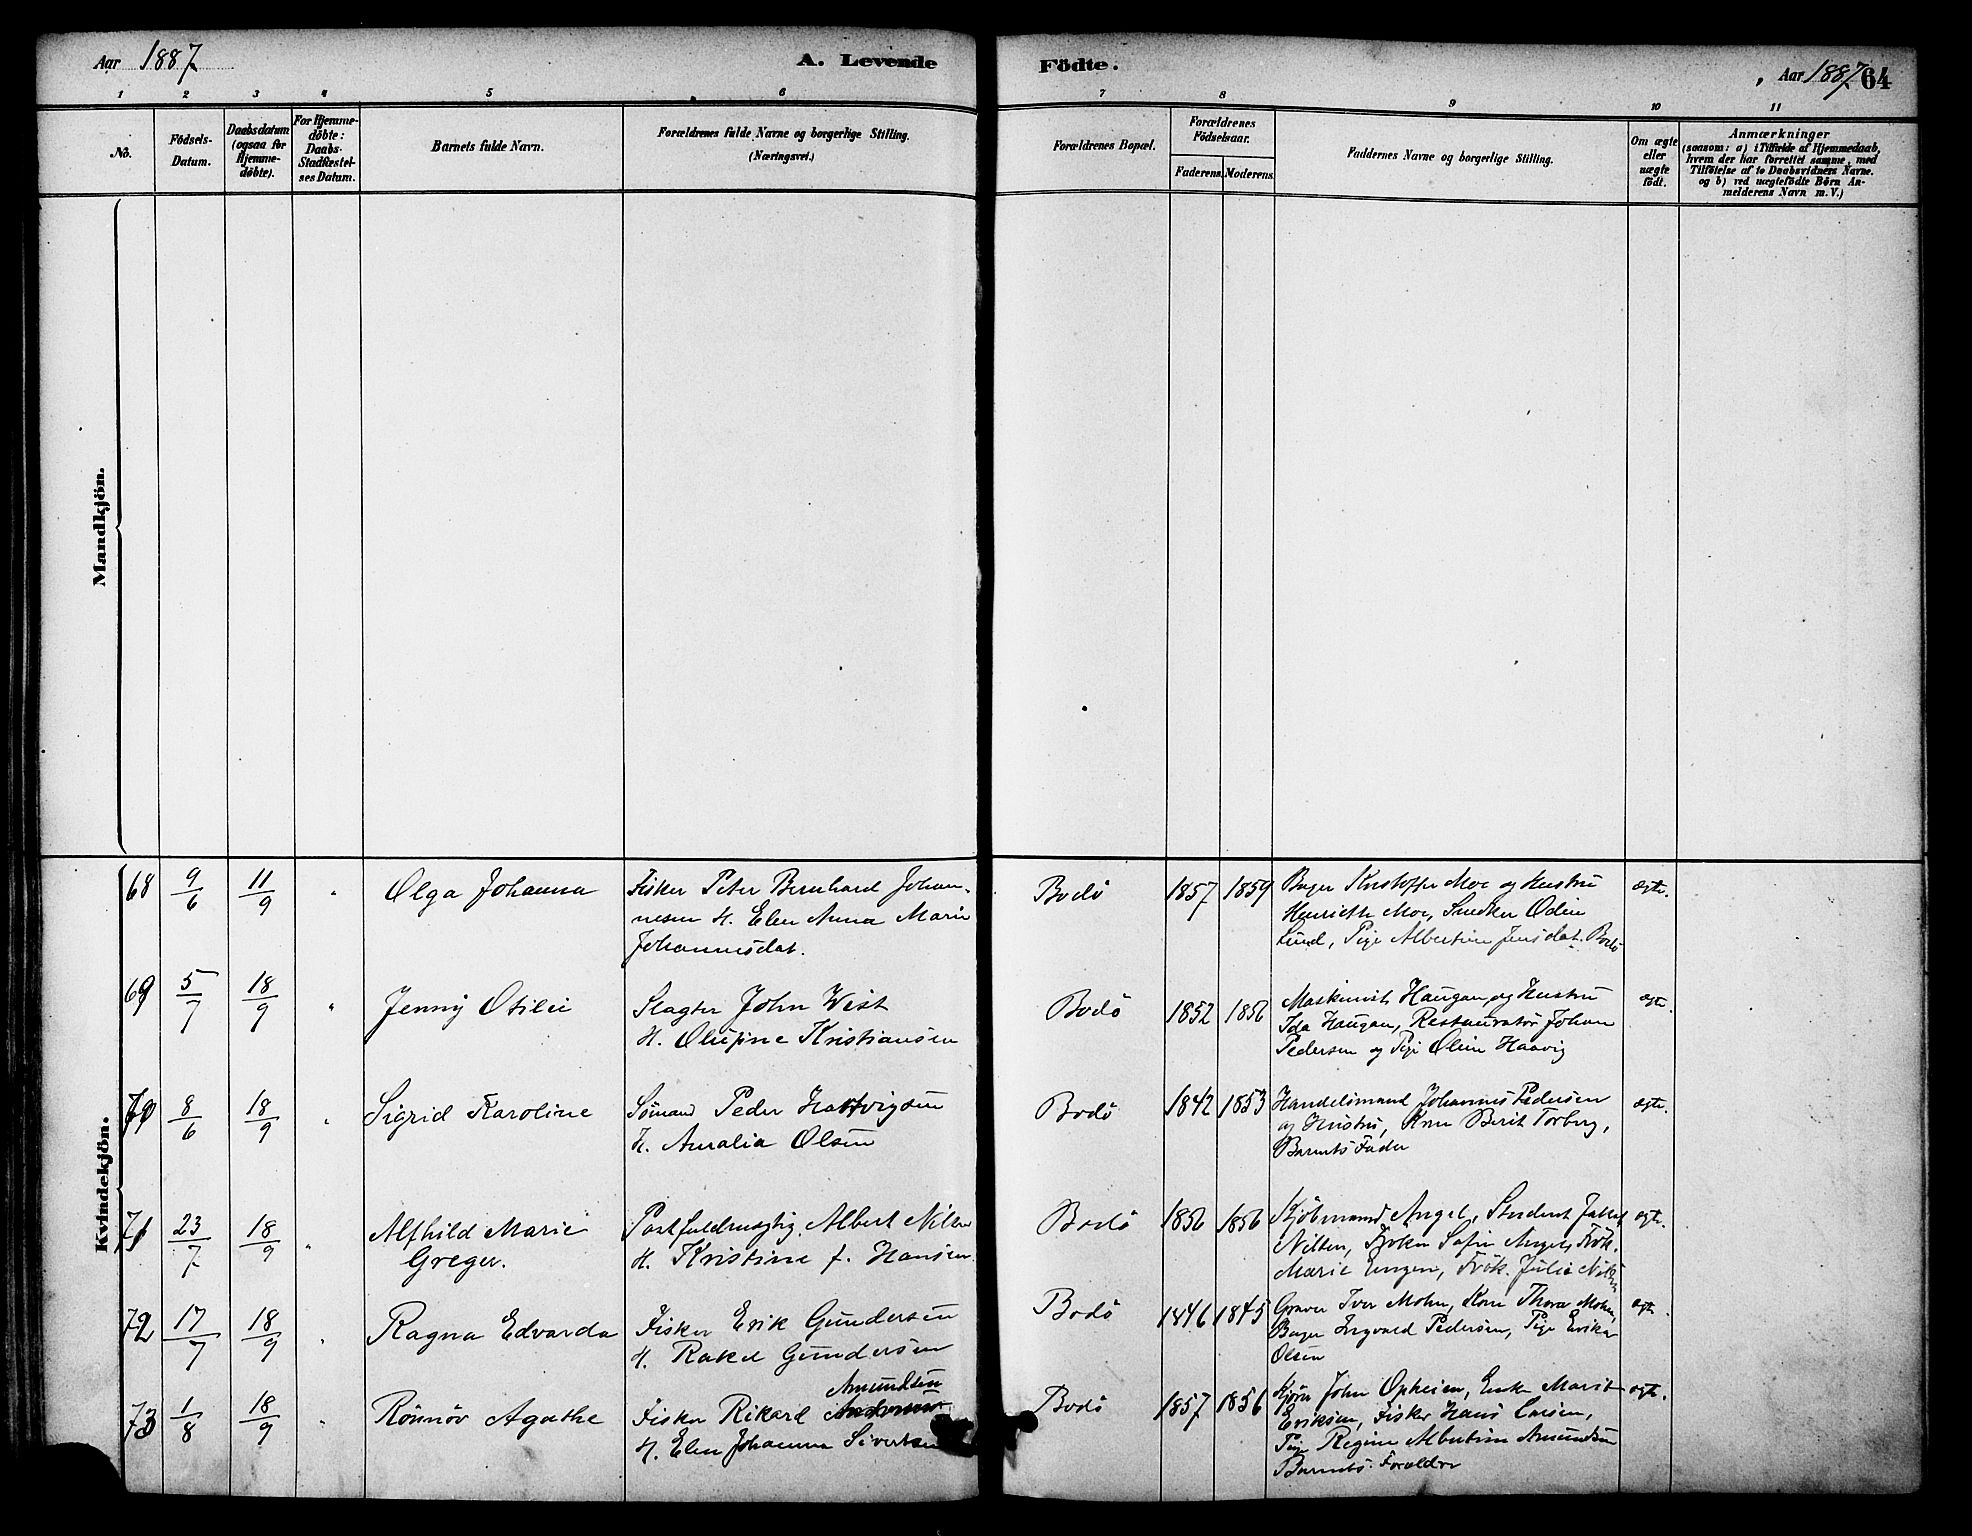 Aar 1887
A. Levende
Födte.
Aar 1887
64
1 2 3 4 5 6 7 8 9 10 11
No.
Födsels-
Datum.
Daabsdatum
(ogsaa for
Hjemme-
døbte).
For Hjemme-
døbte:
Daabs-
Stadfæstel-
ses Datum.
Barnets fulde Navn.
Forældrenes fulde Navne og borgerlige Stilling.
(Næringsvei.)
Forældrenes Bopæl.
Forældrenes
Födselsaar.
Faderens. Moderens.
Faddernes Navne og borgerlige Stilling.
Om ægte
eller
uægte
födt.
Anmærkninger
(saasom: a) i Tilfælde af Hjemmedaab,
hvem der har forrettet samme, med
Tilföielse af to Daabsvidners Navne.
og b) ved uægtefödte Börn An-
melderens Navn m.V.)
Mandkjön.
Kvindekjön.
68 9/6 11/9 " Olga Johanna
Fisker Peter Bernhard Johan-
nesen H. Elen Anna Marie
Johannesdat.
Bodö 1857 1859
Bager Kristoffer Moe og Hustru
Henriette Moe, Snedker Odin
Lund, Pige Albertine Jensdat. Bodö
ægte.
69 5/7 18/9 " Jenny Otilie
Slagter John Wist
H. Olufine Kristiansen
Bodö 1852 1856
Maskinist Haugan og Hustru
Ida Haugan, Restauratör Johan
Pedersen og Pige Oline Haavig
ægte.
70 8/6 18/9 " Sigrid Karoline
Sömand Peder Hartvigsen
H. Amalia Olsen
Bodö 1842 1853
Handelsmand Johannes Pedersen
og Hustru, Kone Berit Torberg,
Barnets Fader
ægte.
71 23/7 18/9 " Alfhild Marie
Greger.
Postfuldmægtig Albert Nilsen
H. Kristine f. Hansen.
Bodö 1856 1856
Kjöbmand Angel, Student
Nilsen, Fröken Angel, Frök.
Marie Engen, Frök. Julie
ægte.
72 17/7 18/9 " Ragna Edvarda
Fisker Erik Gundersen
H. Rakel Gundersen
Bodö 1846 1845
Graver Iver Mohn, Kone Thora Mohn,
Bager Ingvald Pedersen, Pige Erika
Olsen
ægte.
73 1/8 18/9 " Rönnöv Agathe
Amundsen
Fisker Rikard
H. Elen Johanna Sivertsen
Bodö 1857 1856
John Opheim, Enke Marit
Eriksen, Fisker Hans Larsen,
Pige Regine Albertine Amundsen
Barnets Forældre
ægte.